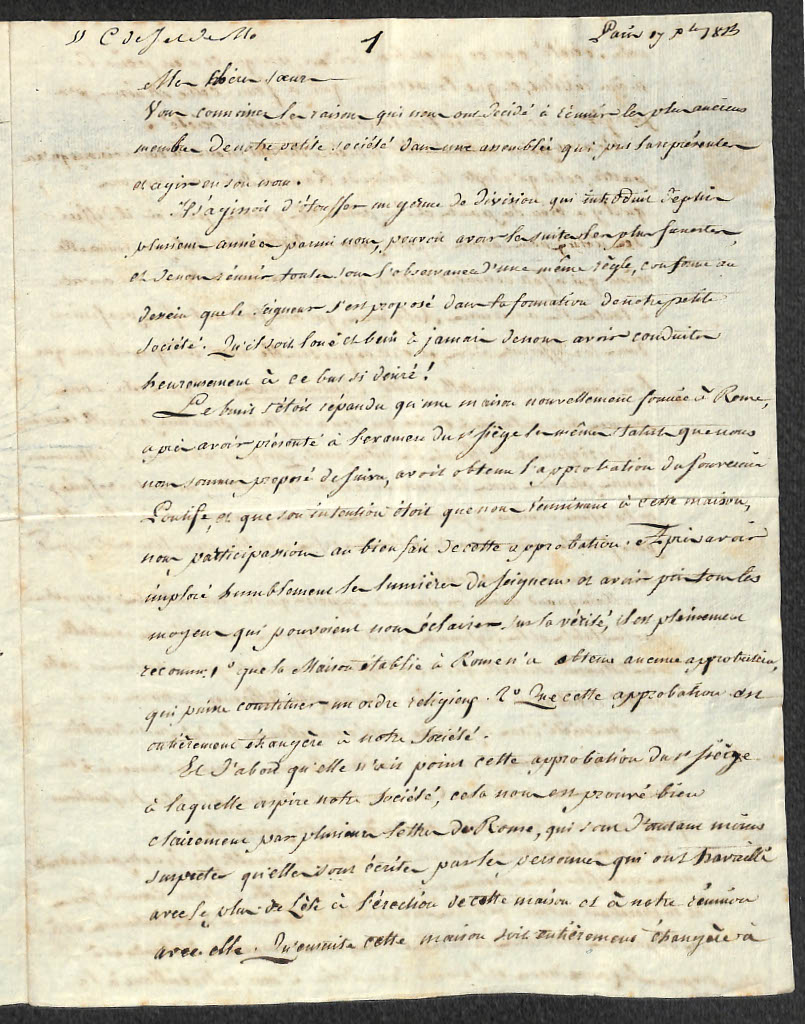 C de J et de M
1
Paris 17 xbre 1815
Mes chères sœurs
Vous connoissez les raisons qui nous ont décidé à réunir les plus anciens
membres de notre petite société dans une assemblée qui pût la représenter
et agir en son nom.
Il s'agissoit d'étouffer un germe de division qui introduit depuis
plusieurs années parmi nous, pouvoit avoir les suites les plus funestes,
et de nous réunir toutes sous l'observance d'une même règle, conforme au
dessein que le Seigneur s'est proposé dans la formation de notre petite
société. Qu'il soit loué et béni à jamais de nous avoir conduites
heureusement à ce but si désiré!
Le bruit s'étoit répandu qu'une maison nouvellement formée à Rome,
après avoir présenté à l'examen du st siège les mêmes statuts que nous
nous sommes proposé de suivre, avoit obtenu l'approbation du souverain
Pontife, et que son intention étoit que nous réunissant à cette maison,
nous participassions au bienfait de cette approbation. Après avoir
imploré humblement les lumières du Seigneur et avoir pris tous les
moyens qui pouvoient nous éclairer sur la vérité, il est pleinement
reconnu: 1° que la Maison établie à Rome n'a obtenu aucune approbation,
qui puisse constituer un ordre religieux. 2° Que cette approbation est
entièrement étrangère à notre Société.
Et d'abord qu'elle n'ait point cette approbation du st siège
à laquelle aspire notre Société, cela nous est prouvé bien
clairement par plusieurs lettres de Rome, qui sont d'autant moins
suspectes qu'elles sont écrites par les personnes qui ont travaillé
avec le plus de zèle à l'érection de cette maison et à notre réunion
avec elle. Qu'ensuite cette maison soit entièrement étrangère à